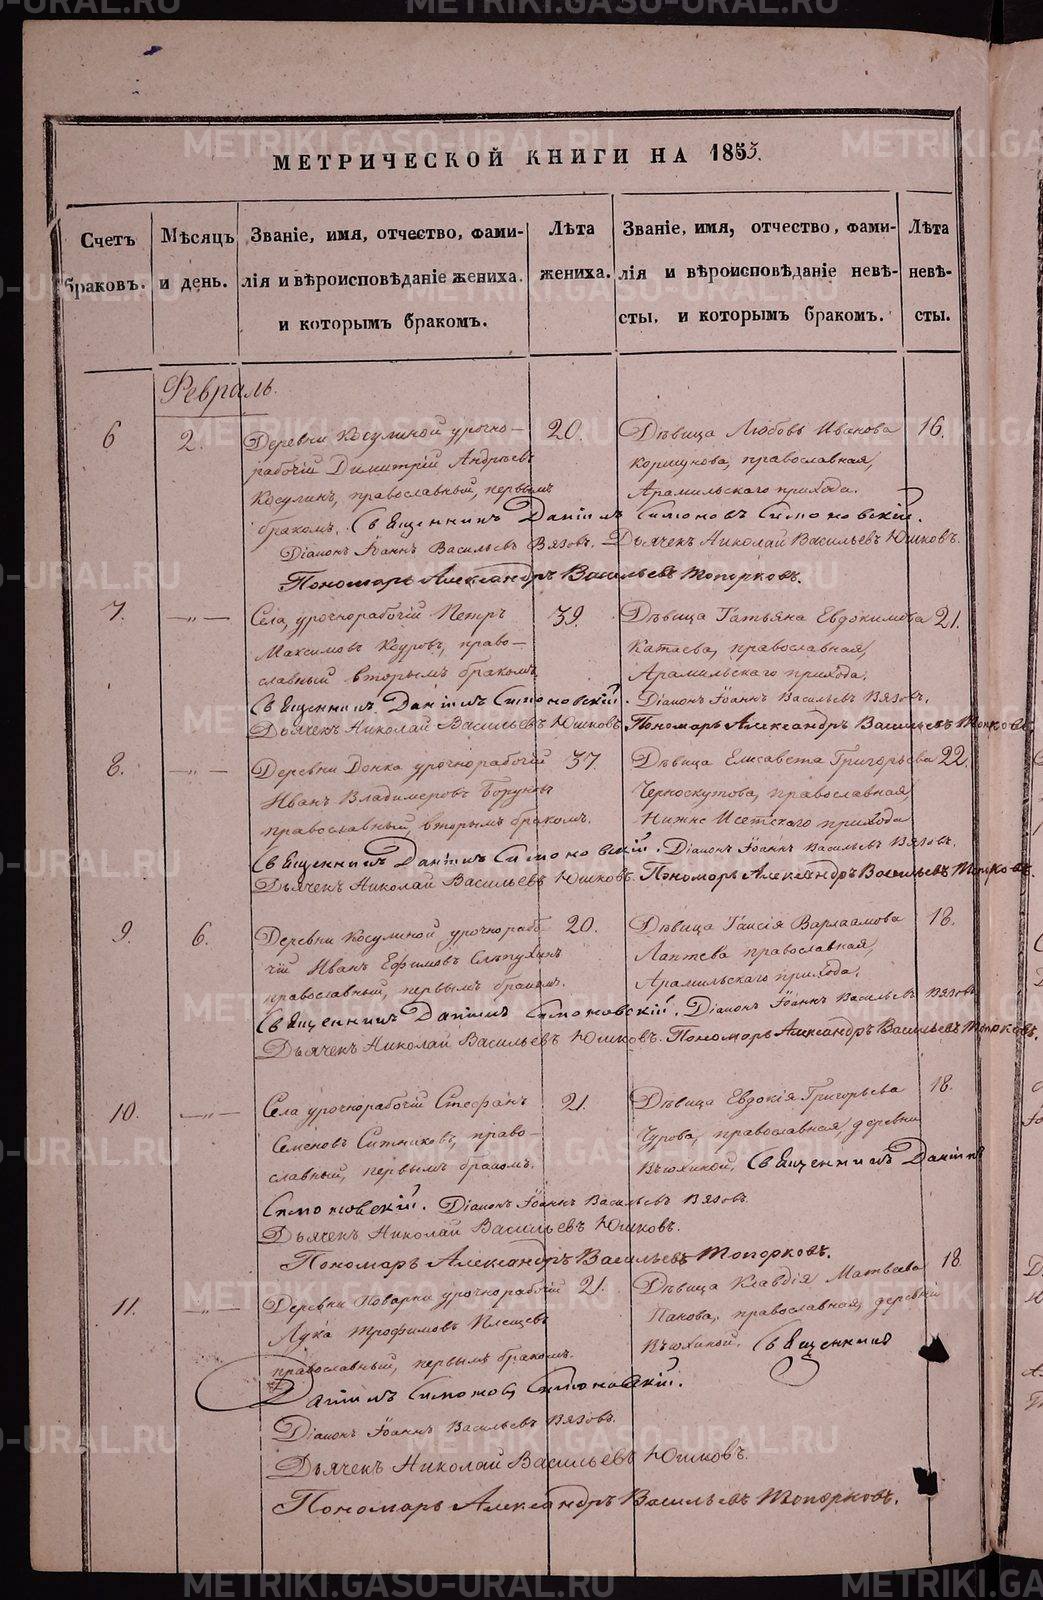 МЕТРИЧЕСКОЙ КНИГИ НА 1855.
Счетъ браковъ.
Мѣсяцъ и день.
Званіе, имя, отчество, фами-
лія и вѣроисповѣданіе жениха.
и которымъ бракомъ.
Лѣта жениха.
Званіе, имя, отчество, фами-
лія и вѣроисповѣданіе невѣ-
сты, и которымъ бракомъ.
Лѣта невѣ-
сты.
Февраль.
6 2. Деревни Косулиной урочно- 20. Дѣвица Любовь Иванова 16.
рабочій Димитрій Андрѣевъ Коршунова, православная,
Косулинъ, православный, первымъ Арамильскаго прихода.
бракомъ. Священникъ Даніилъ Симоновъ Симоновскій.
Діаконъ Іоаннъ Васильевъ Вязовъ. Дьячекъ Николай Васильевъ Юшковъ.
Пономарь Александръ Васильевъ Топорковъ.
7. —„— Села, урочнорабочій Петръ 39. Дѣвица Татьяна Евдокимова 21.
Максимовъ православ- Катаева, православная,
славный вторымъ бракомъ, Арамильскаго прихода.
Священникъ Даніилъ Симоновскій. Діаконъ Іоаннъ Васильевъ Вязовъ.
Дьячекъ Николай Васильевъ Юшковъ. Пономарь Александръ Васильевъ Топорковъ.
8. —„— Деревни урочнорабочій 37. Дѣвица Елисавета Григорьева 22.
Иванъ Владимеровъ Черноскутова, православная,
православный, вторымъ бракомъ. Нижне Исетскаго прихода
Священникъ Даніилъ Симоновскій. Діаконъ Іоаннъ Васильевъ Вязовъ.
Дьячекъ Николай Васильевъ Юшковъ. Пономарь Александръ Васильевъ Топорковъ.
9. 6. Деревни Косулиной, урочнорабо- 20. Дѣвица Таисія Варлаамова 18.
чій Иванъ Ефимовъ Слѣпухинъ Лаптева православная,
православный, первымъ бракомъ. Арамильскаго прихода.
Священникъ Даніилъ Симоновскій. Діаконъ Іоаннъ Васильевъ Вязовъ
Дьячекъ Николай Васильевъ Юшковъ. Пономарь Александръ Васильевъ Топорковъ.
10. —„— Села урочнорабочій Стефанъ 21. Дѣвица Евдокія Григорьева 18.
Семеновъ Ситниковъ, право- Чурова, православная, деревни
славный, первымъ бракомъ. Вьюхиной. Священникъ Даніилъ
Симоновскій. Діаконъ Іоаннъ Васильевъ Вязовъ.
Дьячекъ Николай Васильевъ Юшковъ.
Пономарь Александръ Васильевъ Топорковъ.
11. —„— Деревни Поварни урочнорабочій 21. Дѣвица Клавдія Матвѣева 18.
Лука Трофимовъ Плещевъ Пакова, православная, деревни
православный, первымъ бракомъ. Вьюхиной. Священникъ
Даніилъ Симоновъ Симоновскій.
Діаконъ Іоаннъ Васильевъ Вязовъ.
Дьячекъ Николай Васильевъ Юшковъ.
Пономарь Александръ Васильевъ Топорковъ.
METRIKI.GASO-URAL.RU